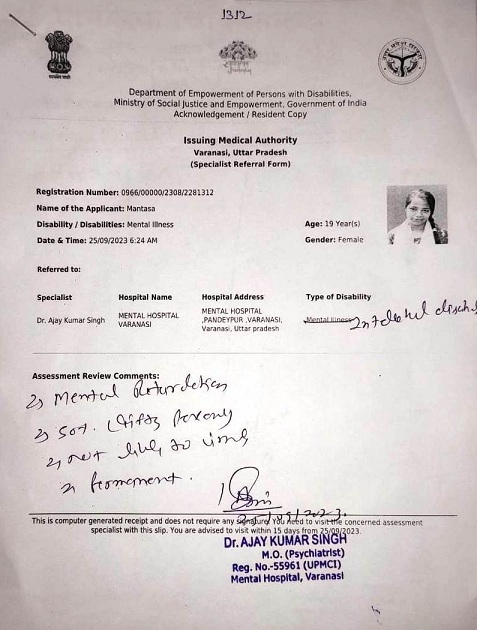 1312
Department of Empowerment of Persons with Disabilities,
Ministry of Social Justice and Empowerment, Government of India
Acknowledgement / Resident Copy
Issuing Medical Authority
Varanasi, Uttar Pradesh
(Specialist Referral Form)
Registration Number: 0966/00000/2308/2281312
Name of the Applicant: Mantasa
Disability / Disabilities: Mental Illness Age: 19 Year(s)
Date & Time: 25/09/2023 6:24 AM Gender: Female
Referred to:
Specialist Hospital Name Hospital Address Type of Disability
Dr. Ajay Kumar Singh MENTAL HOSPITAL VARANASI MENTAL HOSPITAL ,PANDEYPUR ,VARANASI, Varanasi, Uttar pradesh Mental Illness
Assessment Review Comments:
Mental Retardation
not likely to
Permanent.
This is computer generated receipt and does not require any signature. You need to visit the concerned assessment
specialist with this slip. You are advised to visit within 15 days from 25/09/2023.
Dr. AJAY KUMAR SINGH
M.O. (Psychiatrist)
Reg. No.-55961 (UPMCI)
Mental Hospital, Varanasi